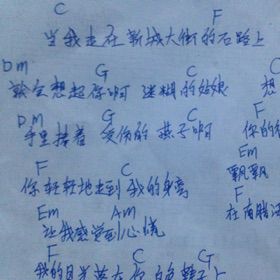 C F
当我走在新城大街的石路上
Dm G C
就会想起你啊 迷糊的姑娘 想
Dm G C
手里捧着 受伤的 燕子啊 你的
F C Em
你轻轻地走到 我的身旁 飘飘
Em Am F
让我感觉到心慌 在
F C G
我的目光落在你的鞋子上